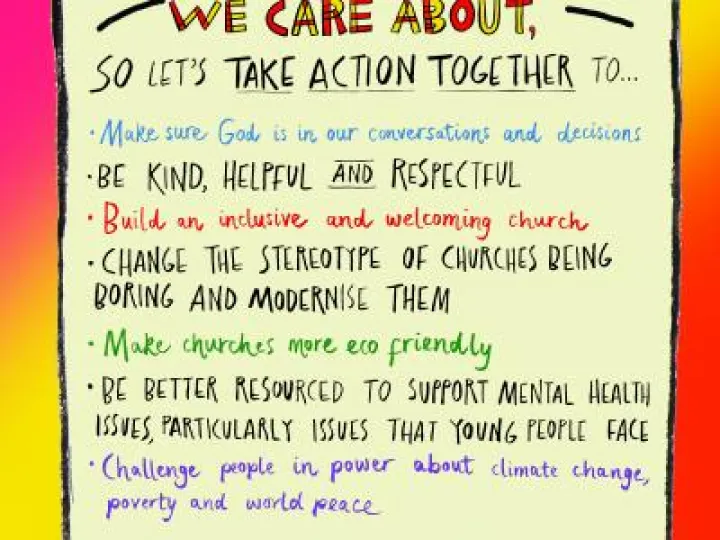 WE CARE ABOUT,
SO LET'S TAKE ACTION TOGETHER TO...
• Make sure God is in our conversations and decisions
• BE KIND, HELPFUL AND RESPECTFUL
• Build an inclusive and welcoming church
• CHANGE THE STEREOTYPE OF CHURCHES BEING
BORING AND MODERNISE THEM
• Make churches more eco friendly
• BE BETTER RESOURCED TO SUPPORT MENTAL HEALTH
ISSUES, PARTICULARLY ISSUES THAT YOUNG PEOPLE FACE
• Challenge people in power about climate change,
poverty and world peace